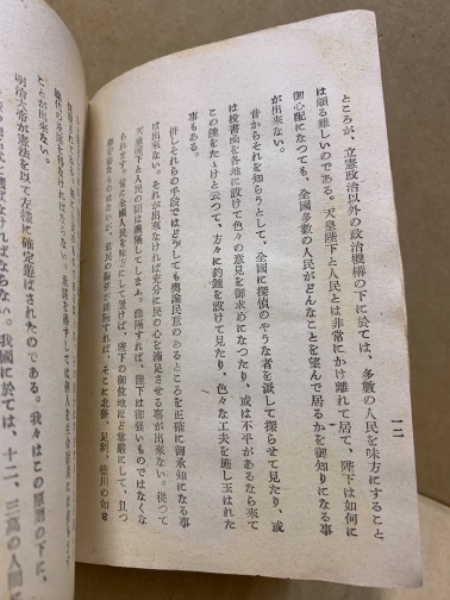 一二
ところが、立憲政治以外の政治機構の下に於ては、多數の人民を味方にすること
は頗る難しいのである。天皇陛下と人民とは非常にかけ離れて居て、陛下は如何に
御心配になつても、全國多數の人民がどんなことを望んで居るかを御知りになる事
が出來ない。
昔からそれを知らうとして、全國に探偵のやうな者を派して探らせて見たり、或
は投書凾を各地に設けて色々の意見を御求めになつたり、或は不平があるなら來て
この鐘をたゝけと云つて、方々に釣鐘を設けて見たり、色々な工夫を施し玉はれた
事もある。
併しそれらの手段ではどうしても輿論民意のあるところを正確に御承知になる事
は出來ない。それが出來なければ充分に民の心を滿足させる事が出來ない。從つて
天皇陛下と人民の間は疎隔してしまふ。疎隔すれば、陛下は御强いものではなくな
られます。常に全國人民を味方にして置けば、陛下の御位地ほど尊嚴にして、且つ
そこに北條、足利、德川の如き
明治大帝が憲法を以て左樣に確定遊ばされたのである。我々はこの
なければならない。我國に於ては、十二、三萬の人間に